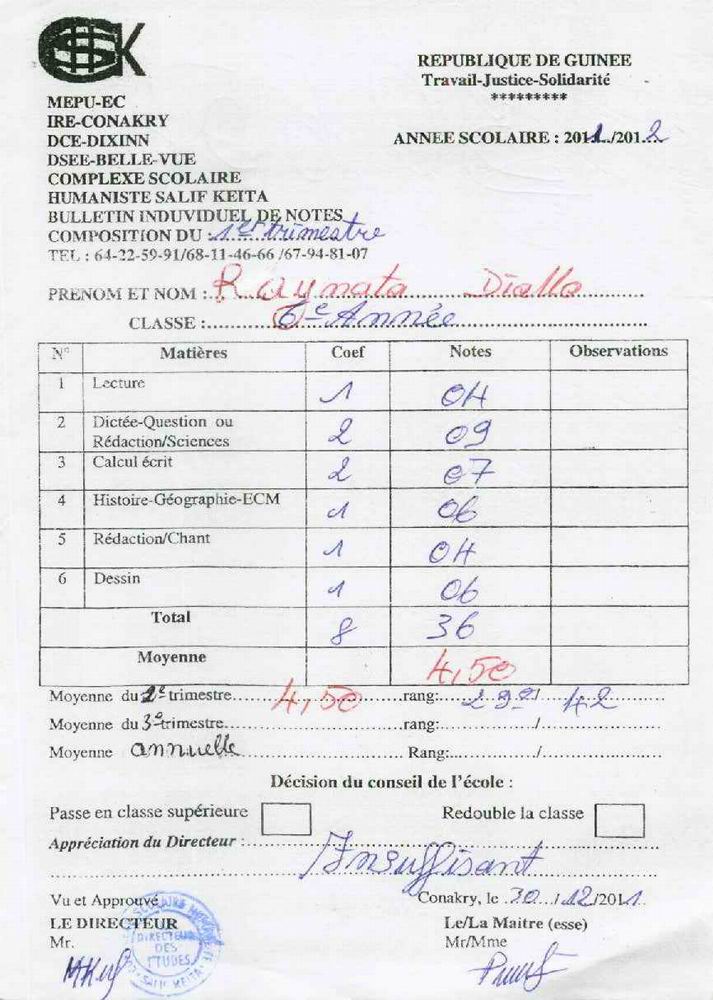 GSK
REPUBLIQUE DE GUINEE
Travail-Justice-Solidarité
*********
MEPU-EC
IRE-CONAKRY
DCE-DIXINN
DSEE-BELLE-VUE
COMPLEXE SCOLAIRE
HUMANISTE SALIF KEITA
ANNEE SCOLAIRE : 2011../201..2
BULLETIN INDUVIDUEL DE NOTES
COMPOSITION DU : 1er trimestre
TEL : 64-22-59-91/68-11-46-66 /67-94-81-07
PRENOM ET NOM :.. Raymata Diallo
CLASSE :.. 6e Année
N° Matières Coef Notes Observations
1 Lecture 1 04
2 Dictée-Question ou Rédaction/Sciences 2 09
3 Calcul écrit 2 07
4 Histoire-Géographie-ECM 1 06
5 Rédaction/Chant 1 04
6 Dessin 1 06
Total 8 36
Moyenne 4,50
Moyenne du 1e trimestre.. 4,50 ..rang: 29e/ 42
Moyenne du 3e trimestre.. rang:............/
Moyenne annuelle Rang:............/
Décision du conseil de l'école :
Passe en classe supérieure Redouble la classe
Appréciation du Directeur :.. Insuffisant
Vu et Approuvé Conakry, le 30../12/2011
LE DIRECTEUR Le/La Maitre (esse)
Mr. Mr/Mme
DIRECTEUR
DES
ETUDES
SALIF KEITA